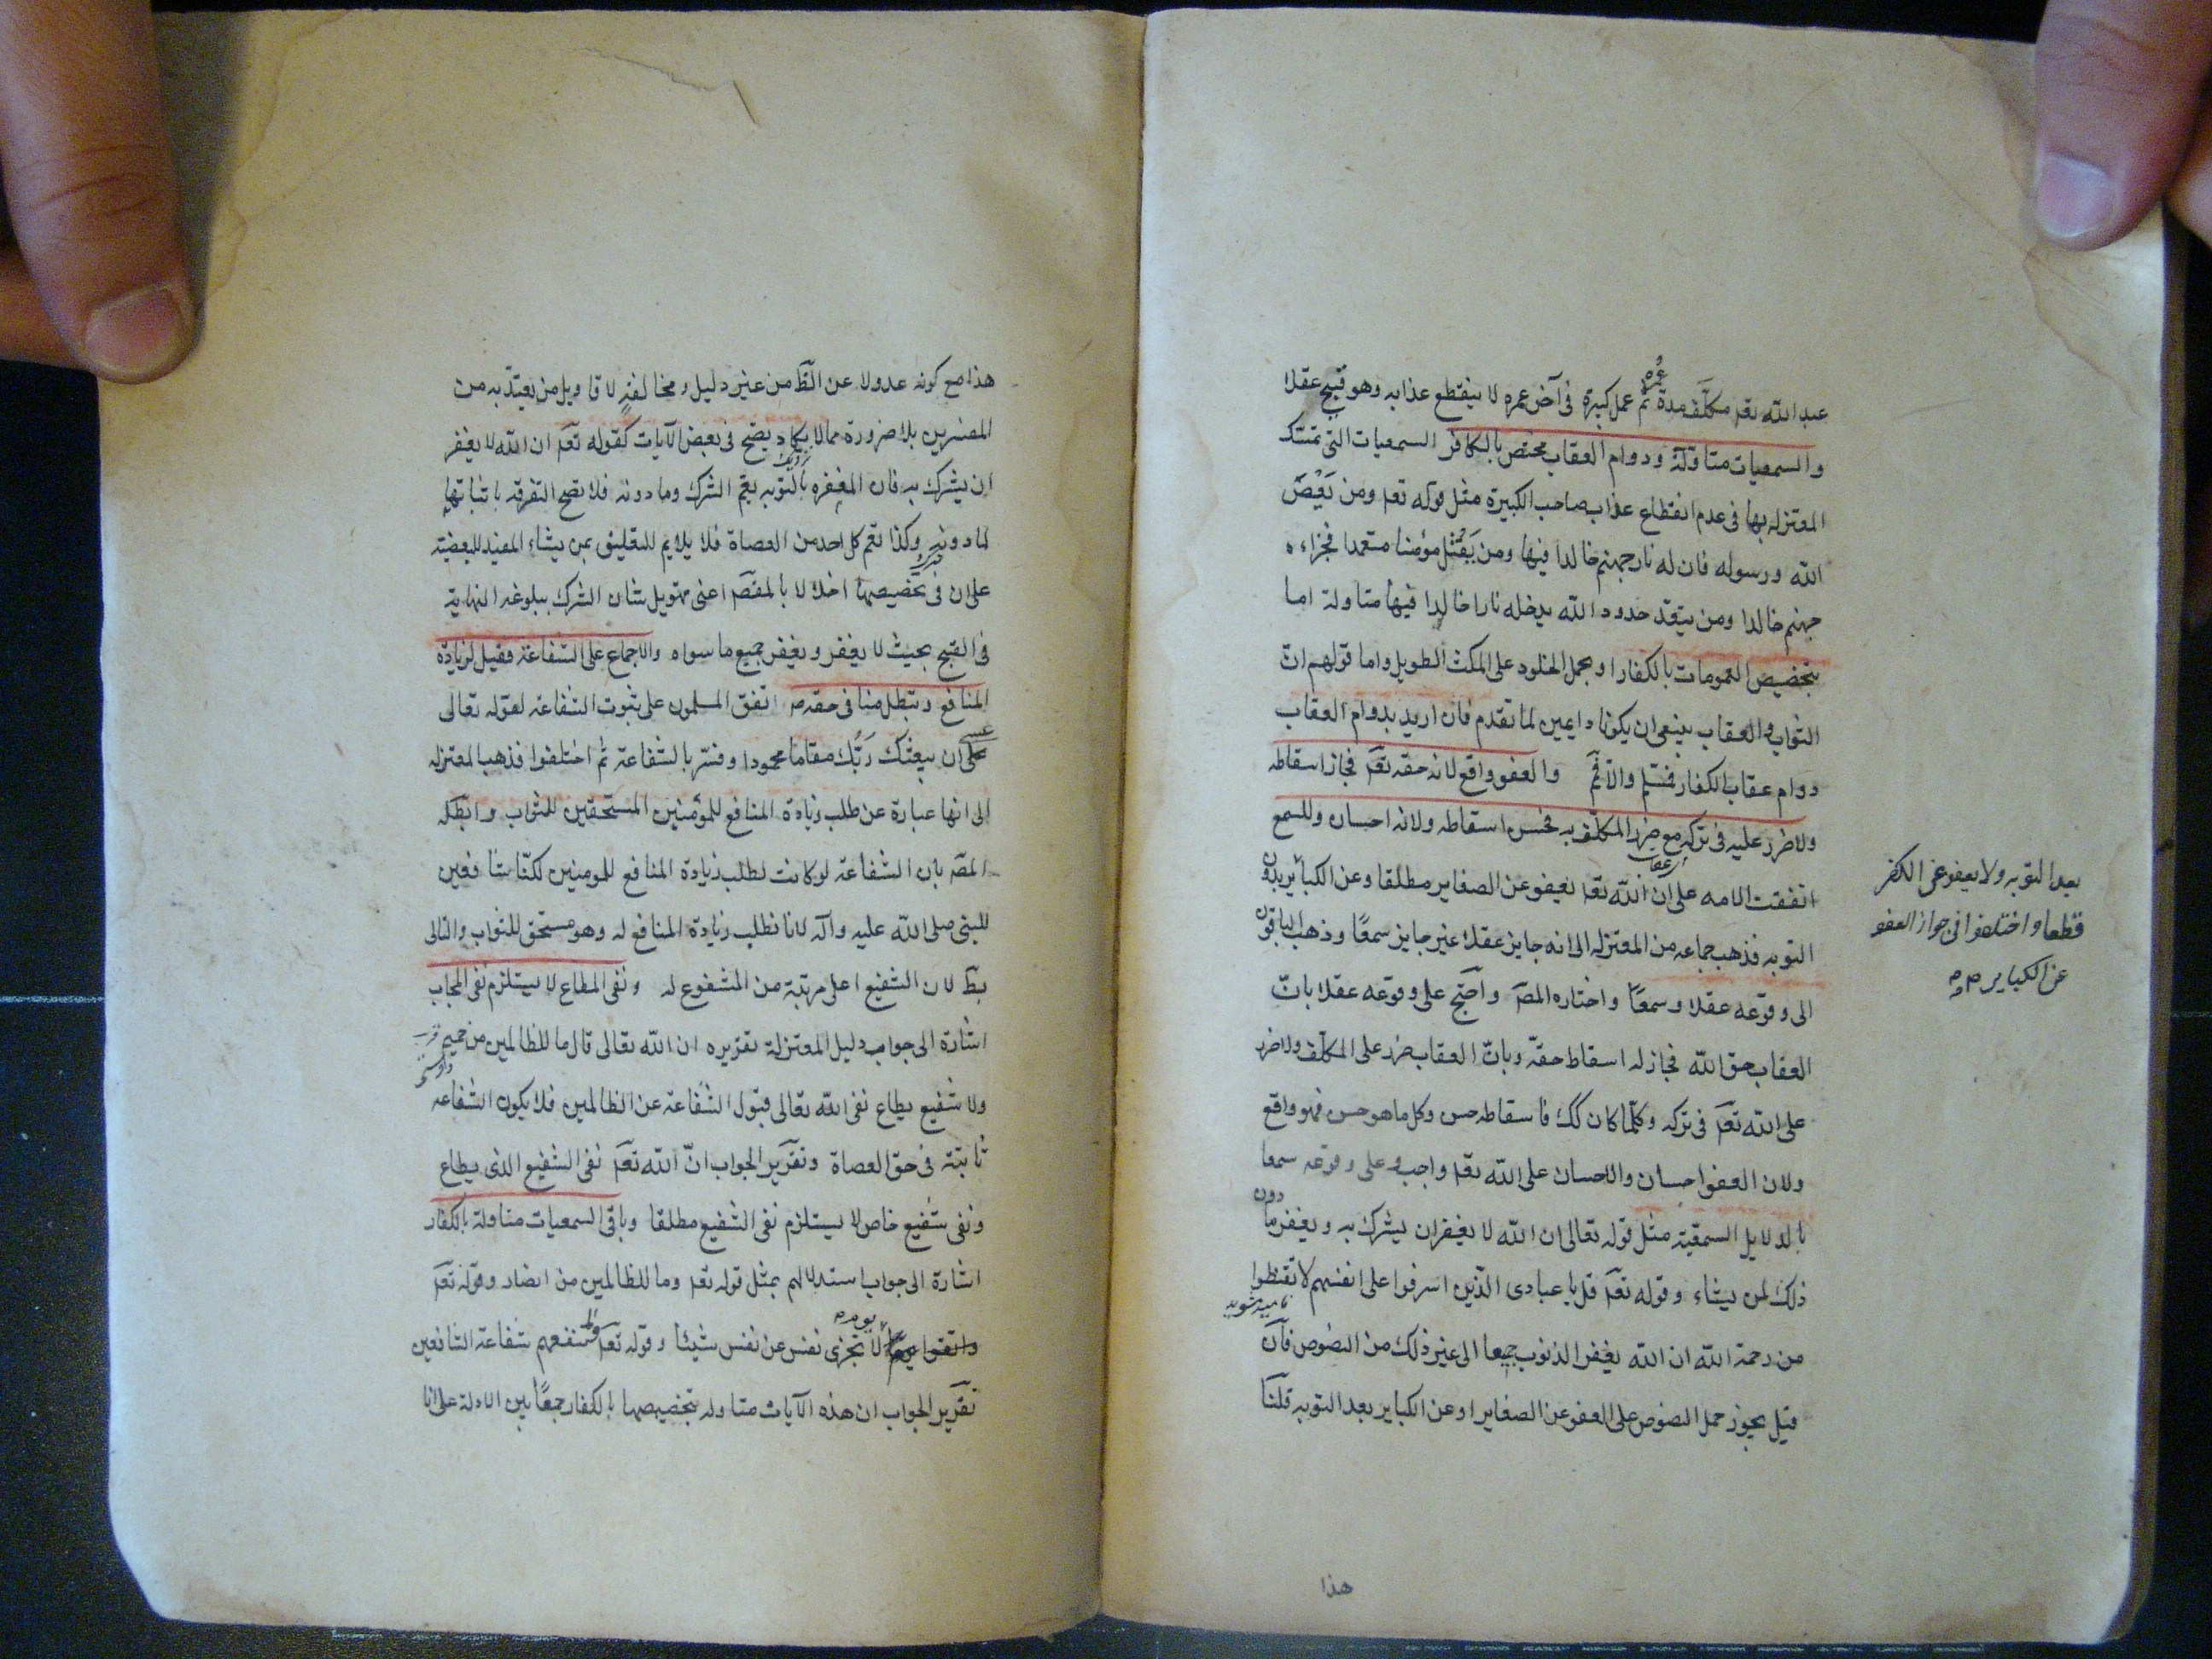 عبد الله تعم مكلّف مدة عمره ثم عمل كبيرة فى آخر عمره لا ينقطع عذابه وهو قبيح عقلا
والسمعيات متاوّلة ودوام العقاب مختص بالكافر السمعيات التى تمسّك
المعتزله بها فى عدم انقطاع عذاب صاحب الكبيرة مثل قوله تعم ومن يَعْصِ
الله ورسوله فان له نار جهنم خالدا فيها ومن يَقْتُل مؤمنا متعمدا فجزاءه
جهنم خالدا ومن يتعد حدود الله يدخله نارا خالدا فيها متاولة اما
بتخصيص العمومات بالكفار او بحمل الخلود على المكث الطويل واما قولهم انّ
الثواب والعقاب ينبغى ان يكونا دايمين لما تقدم فان اريد بدوام العقاب
دوام عقاب الكفار فمسّلم والّا فمَ والعفو واقع لانه حقه تعم فجاز اسقاطه
ولا ضرر عليه فى تركه مع ضرر المكلف به فحسن اسقاطه ولانه احسان وللسمع
اتفقت الامه على ان الله تعم يعفو عن الصغاير مطلقا وعن الكباير بدون
التوبه فذهب جماعه من المعتزله الى انه جايز عقلا غير جايز سمعًا وذهب الباقون
الى وقوعه عقلا وسمعًا واختاره المصَ واحتج على وقوعه عقلا بانّ
العقاب حق الله فجاز له اسقاط حقه وبانّ العقاب ضرر على المكلف ولا ضرر
على الله تعم فى تركه وكلّما كان كك فاسقاطه حسن وكل ما هو حسن فهو واقع
ولان العفو احسان والاحسان على الله تعم واجب وعلى وقوعه سمعا
بالدلايل السمعيّة مثل قوله تعالى ان الله لا يغفر ان يشرك به ويغفر ما دون
ذلك لمن يشاء وقوله تعم قل يا عبادى الذين اسرفوا على انفسهم لا تقنطوا
من رحمة الله ان الله يغفر الذنوب جميعا الى غير ذلك من النصوص فآن
قيل يجوز حمل النصوص على العفو عن الصغاير او عن الكباير بعد التوبه قلنا
بعد التوبه ولا يعفو عن الكفر
قطعا واختلفوا فى جواز العفو
عن الكباير
هذا
هذا مع كونه عدولا عن الظَ من غير دليل ومخالفةٍ لاقاويل من يعتدّ به من
المفسرين بلا ضرورة مما لا يكاد يصّح فى بعض الآيات كقوله تعم ان الله لا يغفر
ان يشرك به فان المغفره بالتوبه يعمّ الشرك وما دونه فلا تصح التفرقه باثباتها
لما دونه وكذا تعم كل احد من العصاة فلا يلايم للتعليق بمن يشاء المفيد للبعضية
على ان فى تخصيصها اخلالا بالمقصَ اعنى تهويل شان الشرك ببلوغه النهاية
فى القبح بحيث لا يغفر ويغفر جميع ما سواه والاجماع على الشفاعة فقيل لزيادة
المنافع وتبطل منا فى حقه اتفق المسلمون على ثبوت الشفاعة لقوله تعالى
عسى ان يبعثك رَبُّك مقاما محمودا وفسّر بالشفاعة ثم اختلفوا فذهب المعتزله
الى انها عبارة عن طلب زيادة المنافع للمؤمنين المستحقين للثواب وابطله
المصَ بان الشفاعة لو كانت لطلب زيادة المنافع للمومنين لكنّا شافعين
للنبى صلى الله عليه وآله لانا نطلب زيادة المنافع له وهو مستحق للثواب والتالى
بطَ لان الشفيع اعلى مرتبة من المشفوع له ونفى المطاع لا يستلزم نفى المجاب
اشارة الى جواب دليل المعتزلة تقريره ان الله تعالى قال ما للظالمين من حميم
ولا شفيع يطاع نفى الله تعالى قبول الشفاعة عن الظالمين فلا يكون الشفاعه
ثابتة فى حق العصاة وتقرير الجواب انّ الله تعم نفى الشفيع الذى يطاع
ونفى شفيع خاص لا يستلزم نفى الشفيع مطلقا وباقى السمعيات متاولة بالكفار
اشارة الى جواب استدلالهم بمثل قوله تعم وما للظالمين من انصار وقوله تعم
واتقوا يوما لا تجزى نفس عن نفس شيئا وقوله تعم فما تنفعهم شفاعة الشافعين
تقرير الجواب ان هذه الآيات متاوله بتخصيصها بالكفار جمعًا بين الادلة على انا